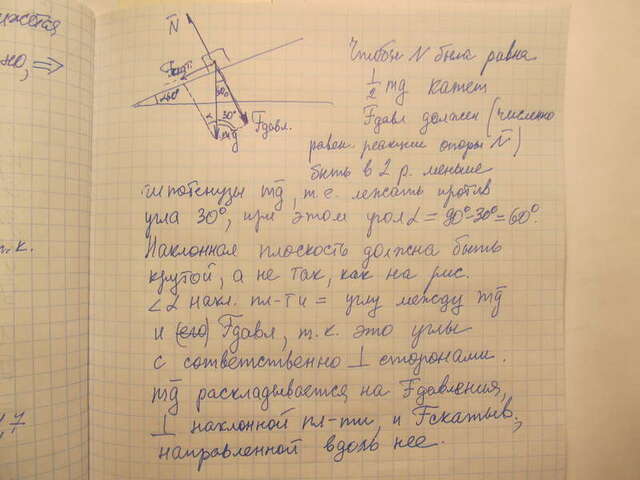 жется
но, ⇒
т.к.
1,7
N̄
Fскат.
α=60°
60°
α
30°
mg
Fдавл.
Чтобы N была равна
1/2 mg катет
Fдавл должен (численно
равен реакции опоры N̄)
быть в 2 р. меньше
гипотенузы mg, т.е. лежать против
угла 30°, при этом угол α = 90°-30°=60°.
Наклонная плоскость должна быть
крутой, а не так, как на рис.
∠α накл. пл-ти = углу между mg
и (его) Fдавл, т.к. это углы
с соответственно ⊥ сторонами.
mg раскладывается на Fдавления,
⊥ наклонной пл-ти, и Fскатыв.,
направленной вдоль нее.